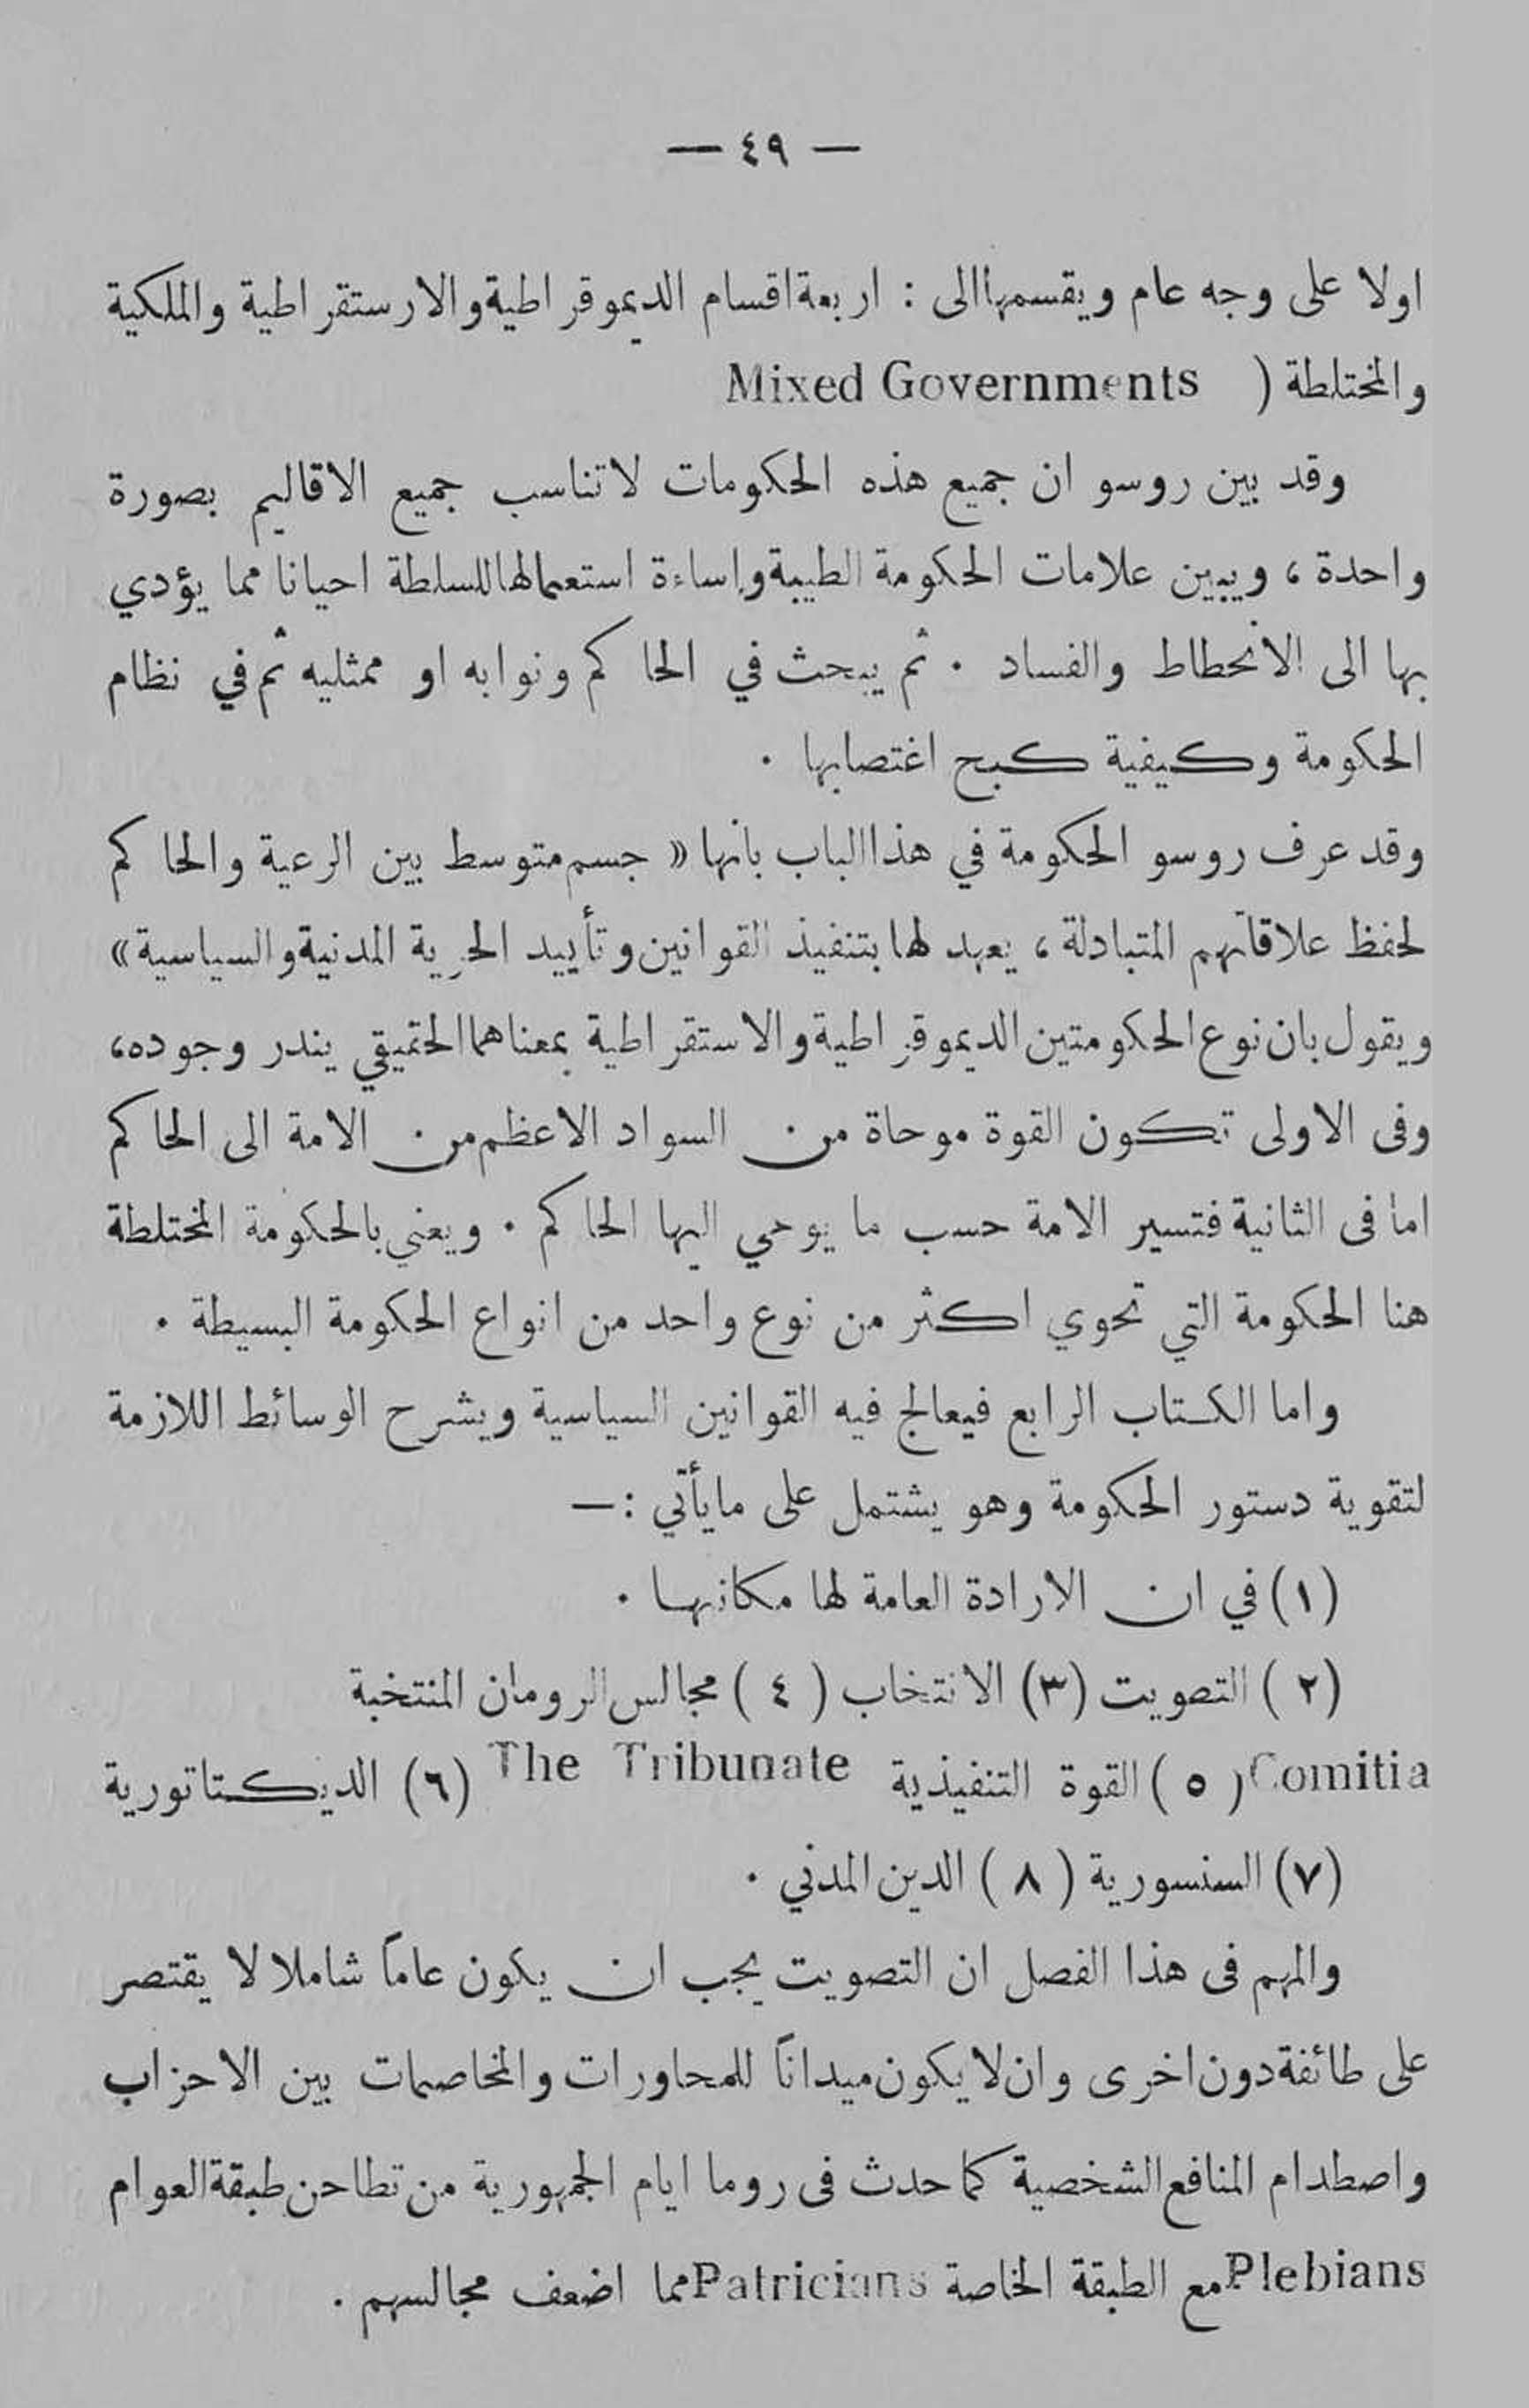 — ٤٩ —
اولا على وجه عام ويقسمها الى : اربعة اقسام الديموقراطية والارستقراطية والملكية
والمختلطة ( Mixed Governments
وقد بين روسو ان جميع هذه الحكومات لا تناسب جميع الاقاليم بصورة
واحدة ، ويبين علامات الحكومة الطيبة وإساءة استعمالها للسلطة احيانا مما يؤدي
بها الى الانحطاط والفساد . ثم يبحث في الحاكم ونوابه او ممثليه ثم في نظام
الحكومة وكيفية كبح اغتصابها .
وقد عرف روسو الحكومة في هذا الباب بانها « جسم متوسط بين الرعية والحاكم
لحفظ علاقاتهم المتبادلة ، يعهد لها بتنفيذ القوانين وتأييد الحرية المدنية والسياسية »
ويقول بان نوع الحكومتين الديموقراطية والاستقراطية بمعناهما الحقيقي يندر وجوده ،
وفى الاولى تكون القوة موحاة من السواد الاعظم من الامة الى الحاكم
اما فى الثانية فتسير الامة حسب ما يوحي اليها الحاكم . ويعني بالحكومة المختلطة
هنا الحكومة التي تحوي اكثر من نوع واحد من انواع الحكومة البسيطة .
واما الكتاب الرابع فيعالج فيه القوانين السياسية ويشرح الوسائط اللازمة
لتقوية دستور الحكومة وهو يشتمل على ما يأتي : —
(١) في ان الارادة العامة لها مكانها .
(٢) التصويت (٣) الانتخاب (٤) مجالس الرومان المنتخبة
Comitia (٥) القوة التنفيذية The Tribunate (٦) الديكتاتورية
(٧) السنسورية (٨) الدين المدني .
والمهم فى هذا الفصل ان التصويت يجب ان يكون عاماً شاملا لا يقتصر
على طائفة دون اخرى وان لا يكون ميداناً للمحاورات والمخاصمات بين الاحزاب
واصطدام المنافع الشخصية كما حدث فى روما ايام الجمهورية من تطاحن طبقة العوام
Plebians مع الطبقة الخاصة Patricians مما اضعف مجالسهم .